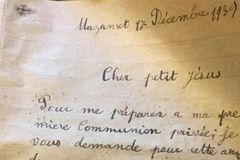 Mazamet 17 Décembre 1939
Cher petit Jésus
Pour me préparez a ma pre
mière Communion privée, je
vous demande pour cette ann